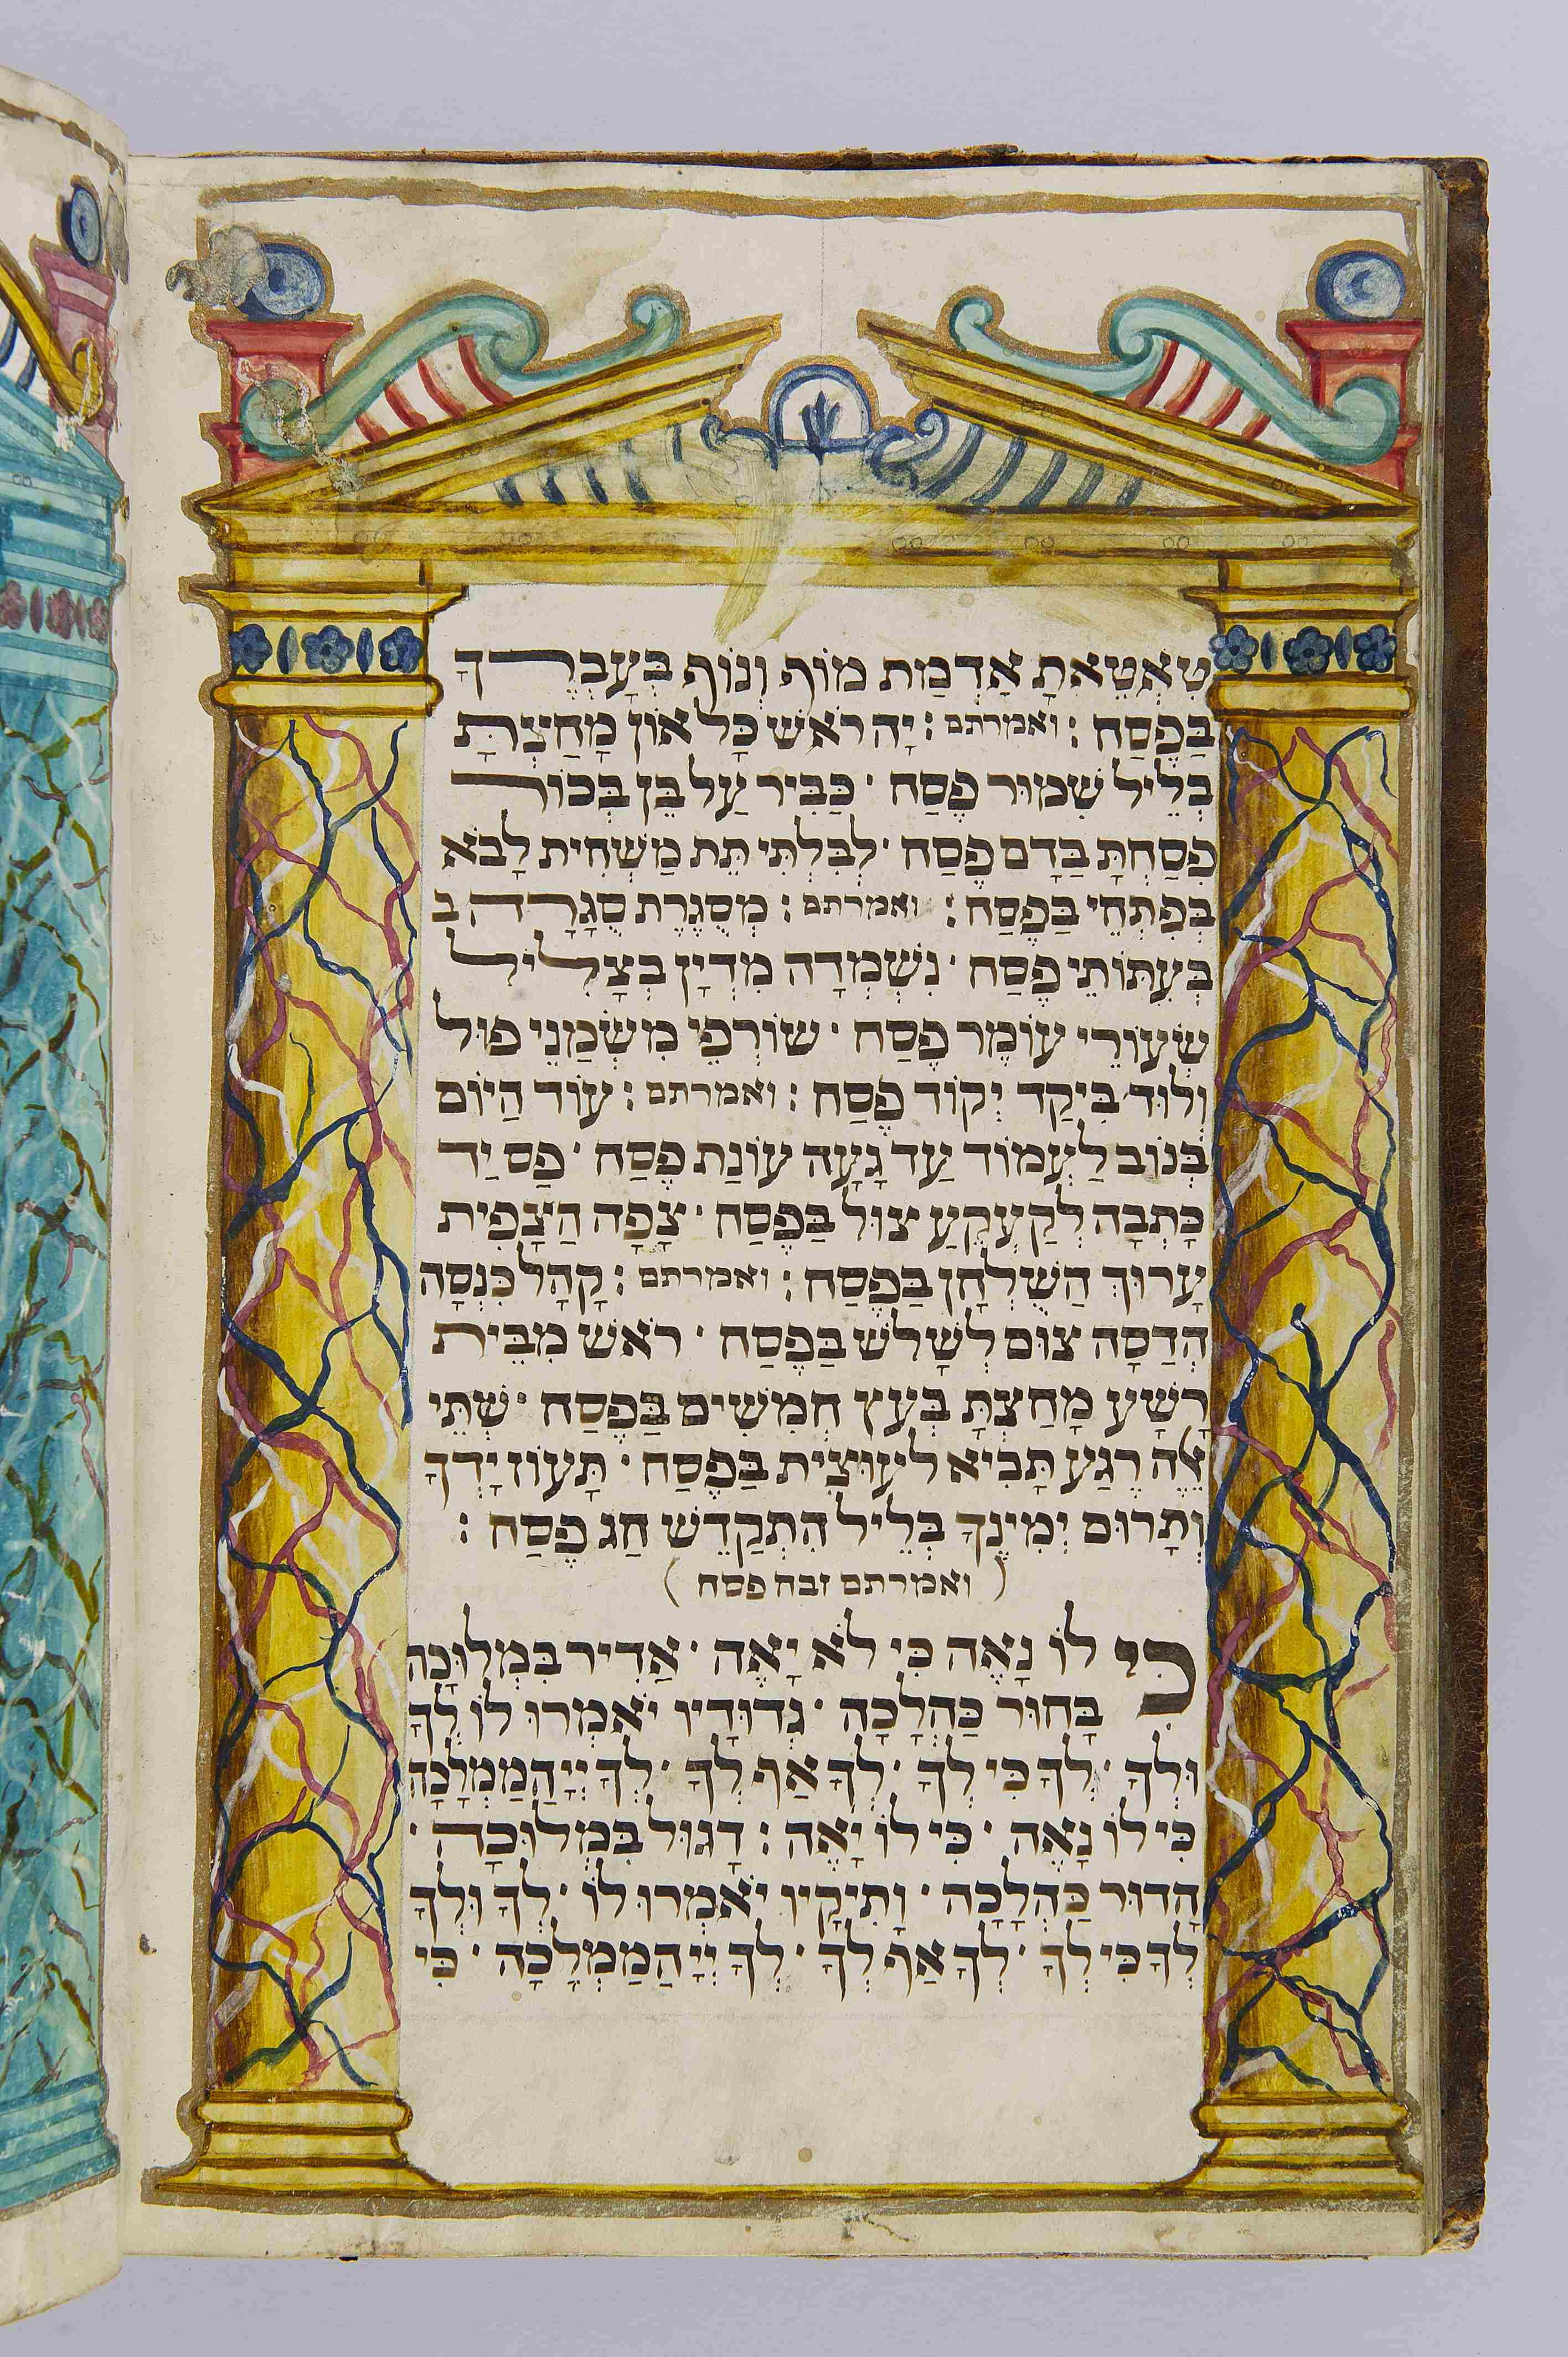 טִאְטֵאתָ אַדְמַת מוֹף וְנוֹף בְּעָבְרְךָ
בַּפֶּסַח : ואמרתם : יָהּ רֹאשׁ כָּל אוֹן מָחַצְתָּ
בְּלֵיל שִׁמּוּר פֶּסַח · כַּבִּיר עַל בֵּן בְּכוֹר
פָּסַחְתָּ בְּדַם פֶּסַח · לְבִלְתִּי תֵּת מַשְׁחִית לָבֹא
בִּפְתָחֵי בַּפֶּסַח : ואמרתם : מְסֻגֶּרֶת סֻגָּרָה ב
בְּעִתּוֹתֵי פֶּסַח · נִשְׁמְדָה מִדְיָן בִּצְלִיל
שְׂעוֹרֵי עוֹמֶר פֶּסַח · שׂוֹרְפוּ מִשְׁמַנֵּי פּוּל
וְלוּד בִּיקַד יְקוֹד פֶּסַח : ואמרתם : עוֹד הַיּוֹם
בְּנוֹב לַעְמוֹד עַד גָּעָה עוֹנַת פֶּסַח · פַּס יַד
כָּתְבָה לְקַעְקֵעַ צוּל בַּפֶּסַח · צָפֹה הַצָּפִית
עָרוֹךְ הַשֻּׁלְחָן בַּפֶּסַח : ואמרתם : קָהָל כִּנְּסָה
הֲדַסָּה צוֹם לְשַׁלֵּשׁ בַּפֶּסַח · רֹאשׁ מִבֵּית
רָשָׁע מָחַצְתָּ בְּעֵץ חֲמִשִּׁים בַּפֶּסַח · שְׁתֵּי
אֵלֶּה רֶגַע תָּבִיא לְעוּצִית בַּפֶּסַח · תָּעוֹז יָדְךָ
וְתָרוּם יְמִינֶךָ בְּלֵיל הִתְקַדֵּשׁ חַג פֶּסַח :
( ואמרתם זבח פסח )
כִּי לוֹ נָאֶה כִּי לֹא יָאֶה · אַדִּיר בִּמְלוּכָה
בָּחוּר כַּהֲלָכָה · גְּדוּדָיו יֹאמְרוּ לוֹ לְךָ
וּלְךָ · לְךָ כִּי לְךָ · לְךָ אַף לְךָ · לְךָ יְיָ הַמַּמְלָכָה
כִּי לוֹ נָאֶה · כִּי לוֹ יָאֶה : דָּגוּל בִּמְלוּכָה ·
הָדוּר כַּהֲלָכָה · וָתִיקָיו יֹאמְרוּ לוֹ · לְךָ וּלְךָ
לְךָ כִּי לְךָ · לְךָ אַף לְךָ · לְךָ יְיָ הַמַּמְלָכָה · כִּי